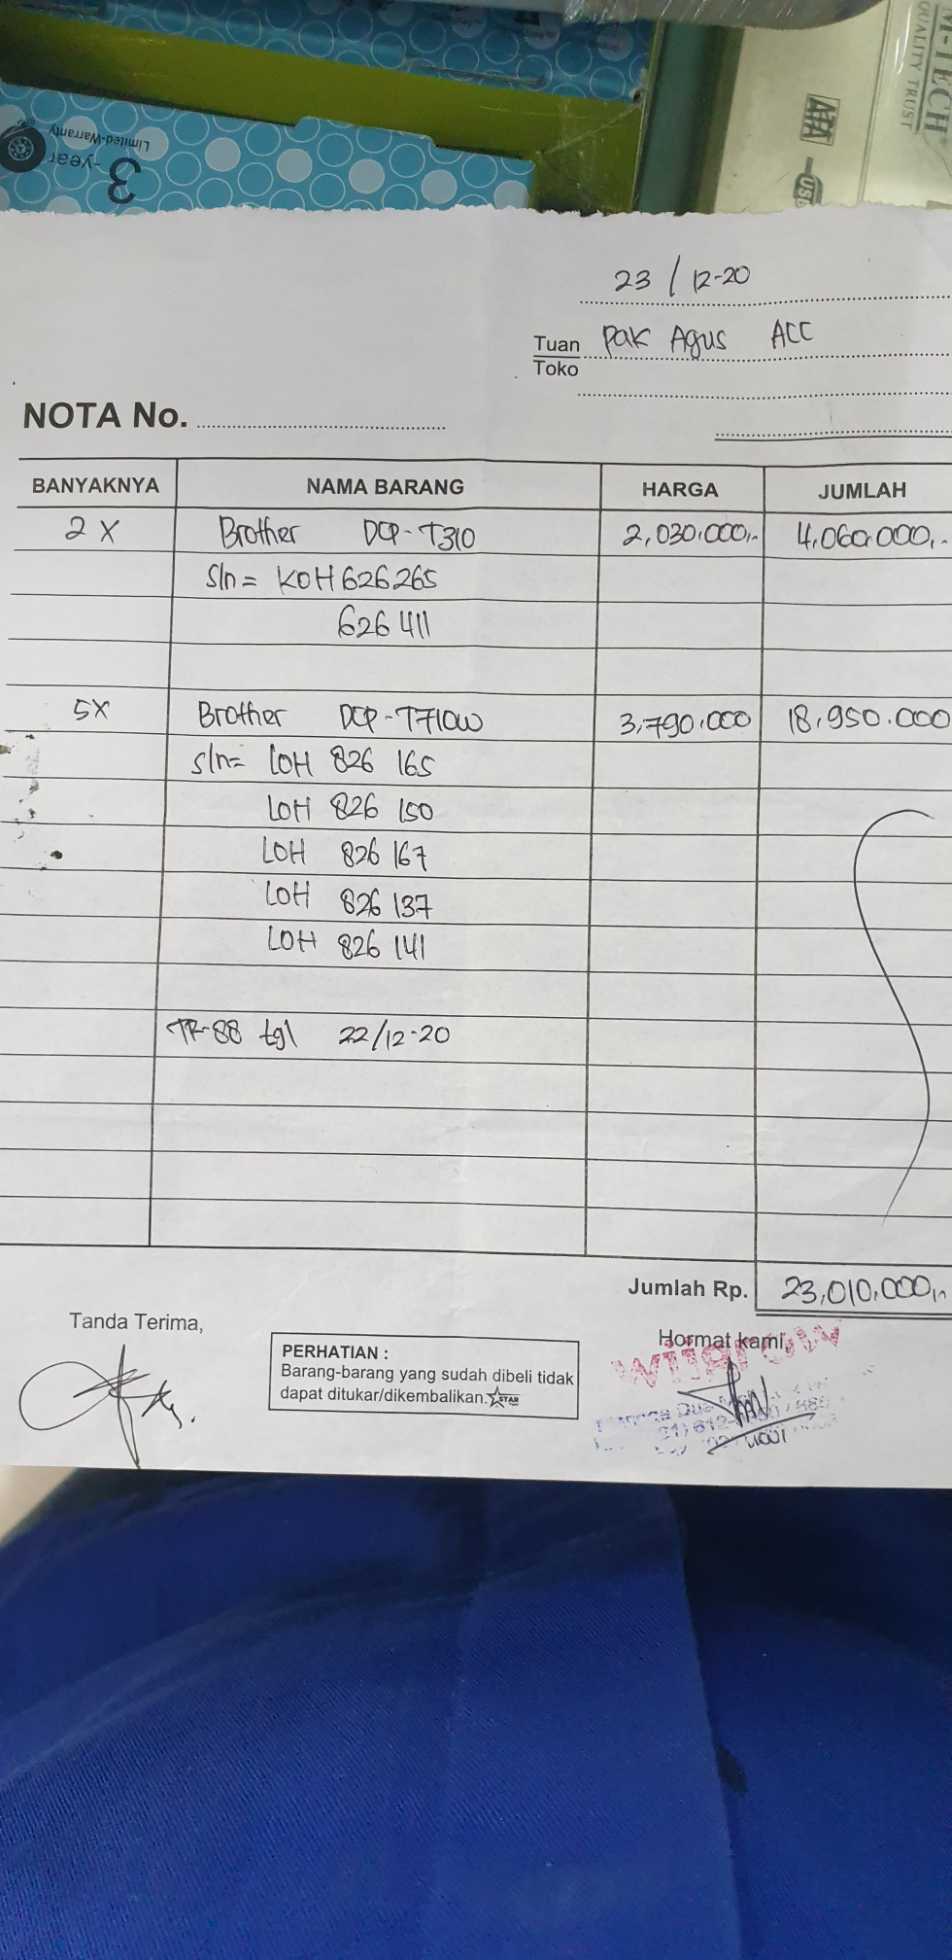 3-year
Limited-Warranty
H-TECH
QUALITY TRUST
ATA
23 / 12-20
Tuan Pak Agus ACC
Toko
NOTA No.
BANYAKNYA NAMA BARANG HARGA JUMLAH
2 X Brother DCP-T310 2,030.000,- 4,060.000,-
S/n = KOH 626265
626411
5X Brother DCP-T710W 3,790.000 18,950.000
S/n= LOH 826 165
LOH 826 150
LOH 826 167
LOH 826 137
LOH 826 141
TR-88 tgl 22/12-20
Jumlah Rp. 23,010.000,-
Tanda Terima,
PERHATIAN :
Barang-barang yang sudah dibeli tidak
dapat ditukar/dikembalikan. STAR
Hormat kami,